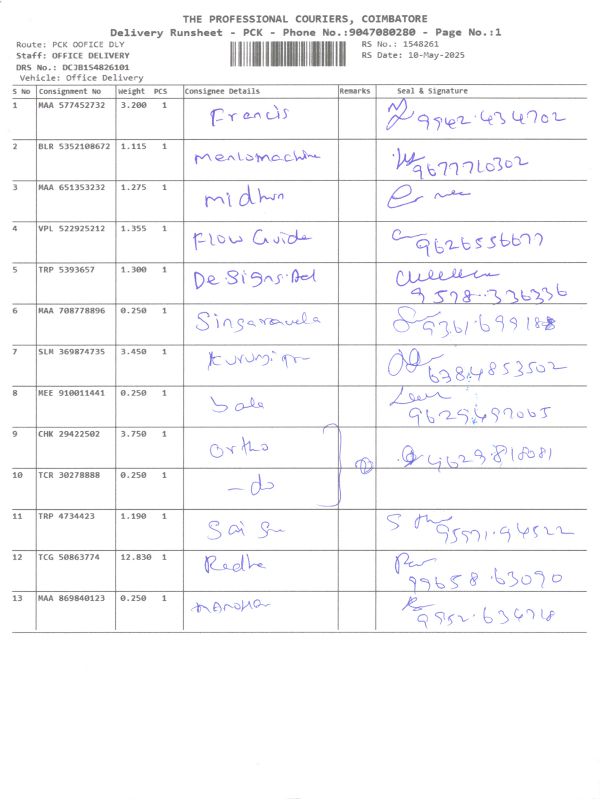 THE PROFESSIONAL COURIERS, COIMBATORE
Delivery Runsheet - PCK - Phone No.:9047080280 - Page No.:1
Route: PCK OOFICE DLY RS No.: 1548261
Staff: OFFICE DELIVERY RS Date: 10-May-2025
DRS No.: DCJB154826101
Vehicle: Office Delivery
S No Consignment No Weight PCS Consignee Details Remarks Seal & Signature
1 MAA 577452732 3.200 1 Francis 9942.434702
2 BLR 5352108672 1.115 1 Menlomachine 9677710302
3 MAA 651353232 1.275 1 Midhun
4 VPL 522925212 1.355 1 Flow Guide 9626556677
5 TRP 5393657 1.300 1 De.Signs.Ad 9578..336336
6 MAA 708778896 0.250 1 Singaravela
7 SLM 369874735 3.450 1 6384853502
8 MEE 910011441 0.250 1 bala 9629.497065
9 CHK 29422502 3.750 1 Ortho 9629.818081
10 TCR 30278888 0.250 1 -do
11 TRP 4734423 1.190 1 Sai
12 TCG 50863774 12.830 1 Radha 99658.63090
13 MAA 869840123 0.250 1